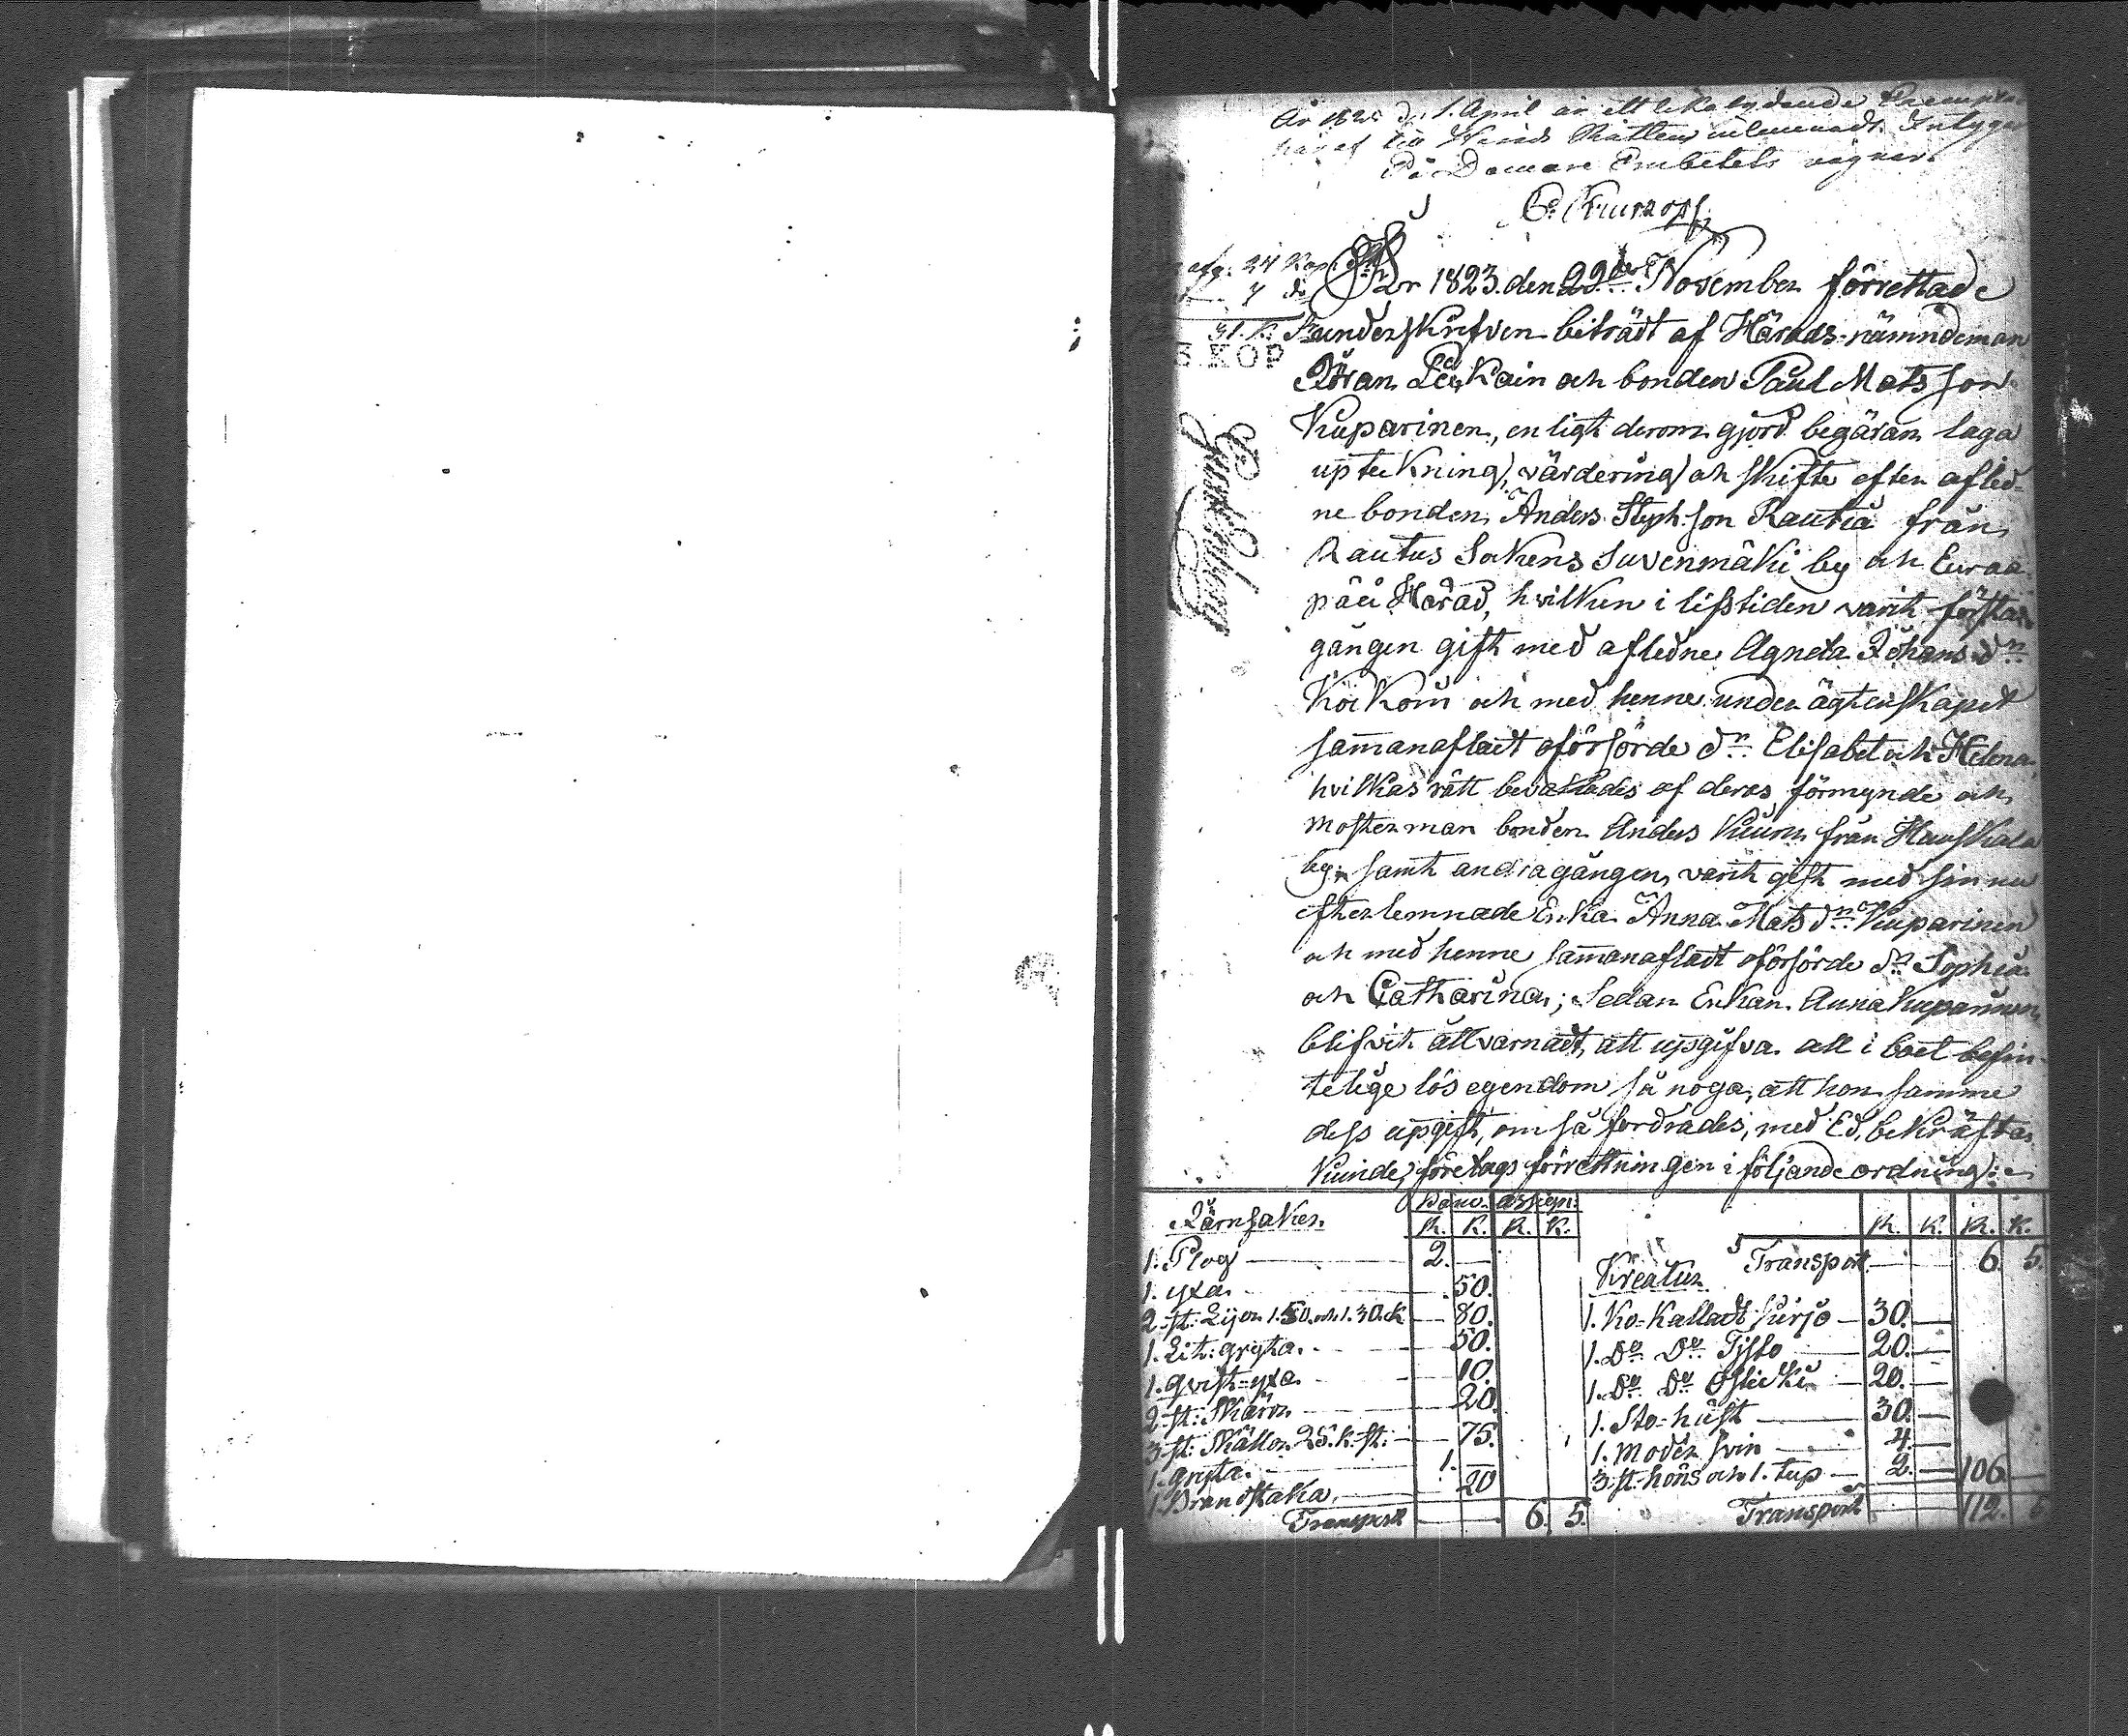 År 182 d. 1. April är ett lika lydande Exemplar
häraf till Härads Rätten inlemnadt. Intygar
På Domare Embetets vägnar
afg. 24 Kop.
7 d:o
31. K.
S. KOP
År 1823. den 22:dra November förrettade
underskrifven biträdt af Härads-nämndeman
Jöran Leskain och bonden Paul Mats son
Kuparinen, enligt derom gjord begäran laga
upteckning, värdering och skifte efter afled-
ne bonden Anders Steph:son Rautia från
Rautus Sockens Suvenmäki by och Euraa-
pää Härad, hvilken i lifstiden varit första
gången gift med afledne Agneta Johans d:r
Koikoin och med henne under ägtenskapet
sammanaflat oförsörde d:r Elisabet och Helena,
hvilkas rätt bevakades af deras förmynde och
mosterman bonden Anders Kiurn från Hauskala
by, samt andra gången varit gift med sin nu
efterlemnade Enka Anna Mats d:r Kuparinen
och med henne sammanaflat oförsörde d:r Sophia
och Catharina; Sedan Enkan Anna Kuparinen
blifvit allvarnadt, att upgifva all i boet befin-
telige lös egendom så noga, att hon samme
dess upgift, om så fordrades, med Ed bekräfta
kunde, företags förrettningen i följande ordning:
Järnsaker Banco assign:
R. K. R. K. R. K. R. K.
1. Plog 2. —
1. yxa 50.
2. st: Lijor 1. 50. och 1. 30. k 80.
1. Lit: gryta 50.
1. qvist-yxa 10.
2. st: Skäror 20.
3. st: Skällor 25. k. st: 75.
1. gryta 1. —
1. Brandstaka 20
Transport 6. 5.
Transport 6. 5.
Kreatur
1. Ko-Kalladt Kirjo 30. —
1. D:o D:o Tjsto 20. —
1. D:o D:o Ostikki 20. —
1. Sto-häst 30. —
1. Moder svin 4. —
3. st. höns och 1. tup 2. — 106. —
Transport 112. 5